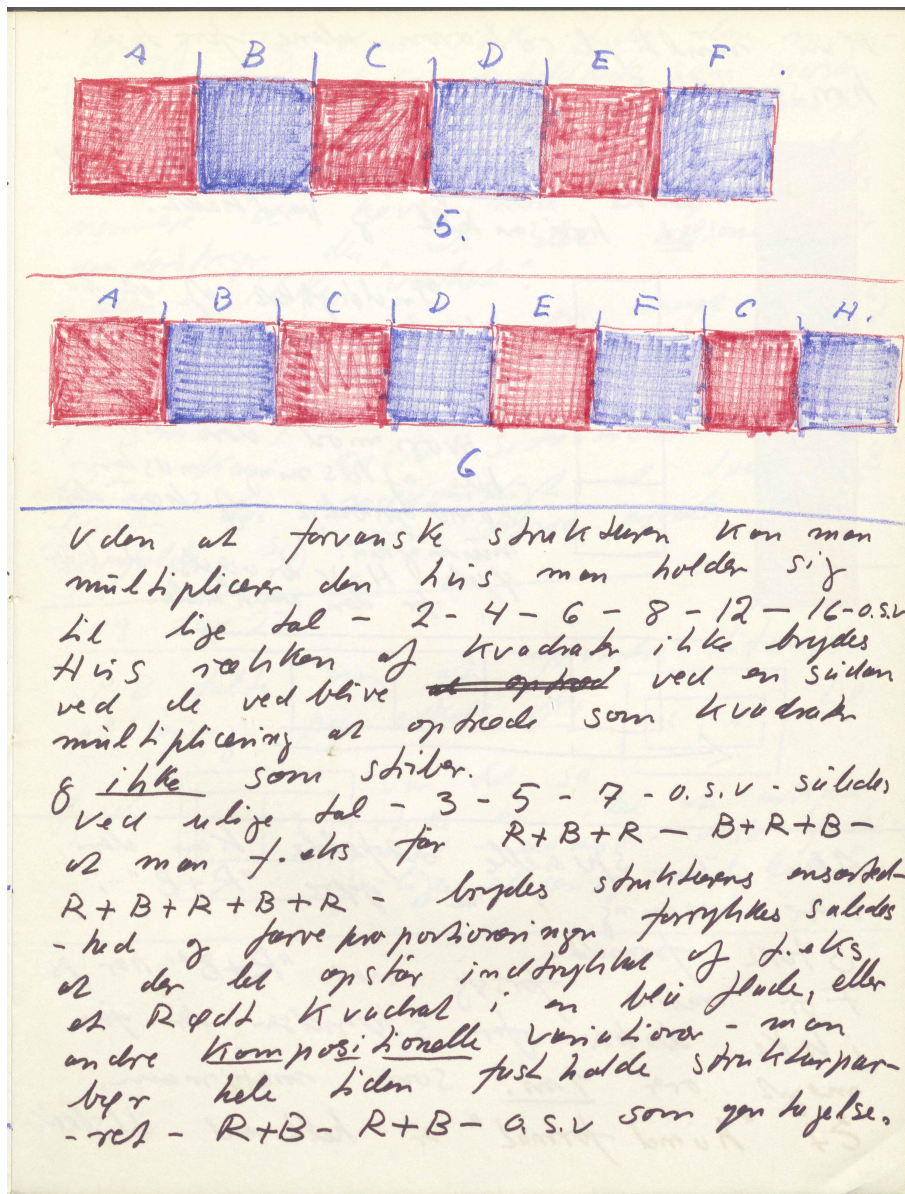 A B C D E F .
5.
A B C D E F G H.
6
Uden at forvanske strukturen kan man
multiplicere den hvis man holder sig
til lige tal - 2 - 4 - 6 - 8 - 12 - 16 - o.s.v
Hvis rækken af kvadrater ikke brydes
ved de ved blive at optræd ved en sådan
multiplicering at optræde som kvadrater
og ikke som striber.
Ved ulige tal - 3 - 5 - 7 - o.s.v - således
at man f.eks får R+B+R - B+R+B -
R+B+R+B+R - brydes strukturens ensarted-
-hed og farveproportioneringen forrykkes således
at der let opstår indtrykket af f.eks,
et Rødt Kvadrat i en blå flade, eller
andre kompositionelle variationer - man
bør hele tiden fastholde strukturpar-
-ret - R+B - R+B - o.s.v som gentagelse.